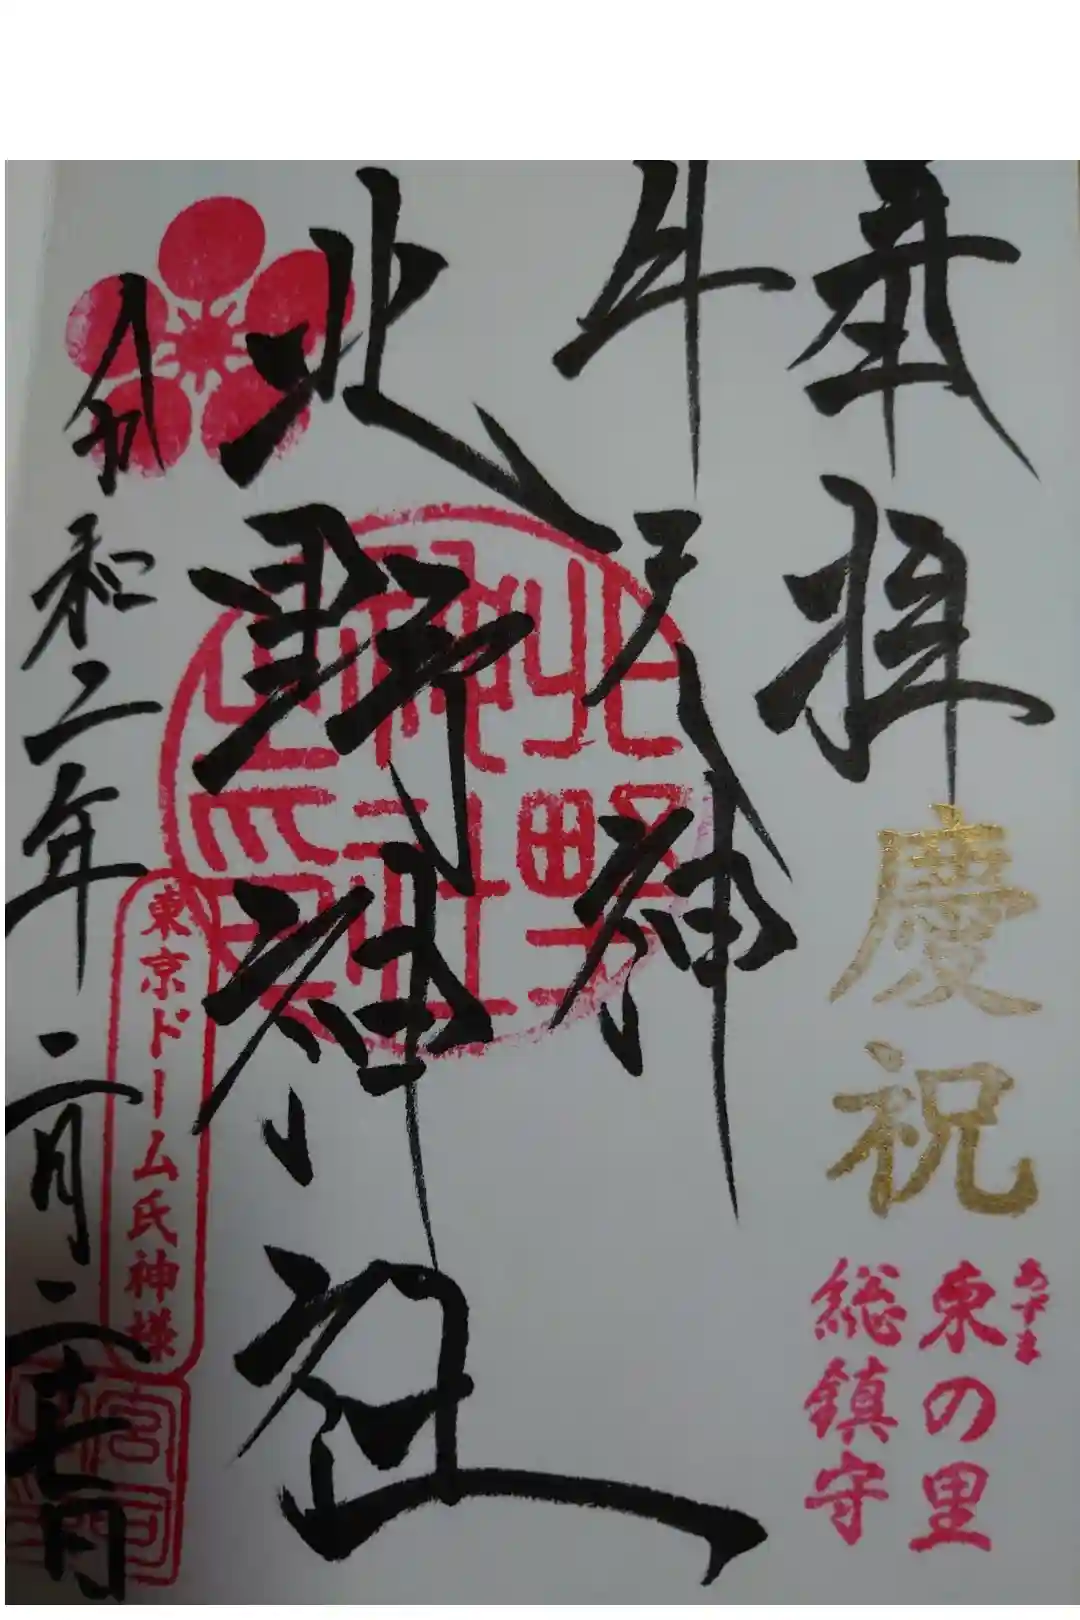 奉拝
慶祝
東の里
あずま
総鎮守
牛天神
北野神社
令和二年二月二十七日
東京ドーム氏神様